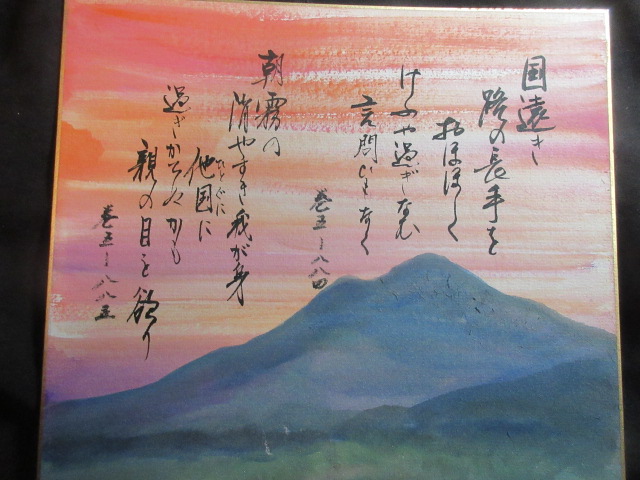 国遠き
路の長手を
おほほしく
けふや過ぎなむ
言問ひもなく
巻五ー八八四
朝霧の
消やすき我が身
他国に
ひとくに
過ぎかてぬかも
親の目を欲り
巻五ー八八五